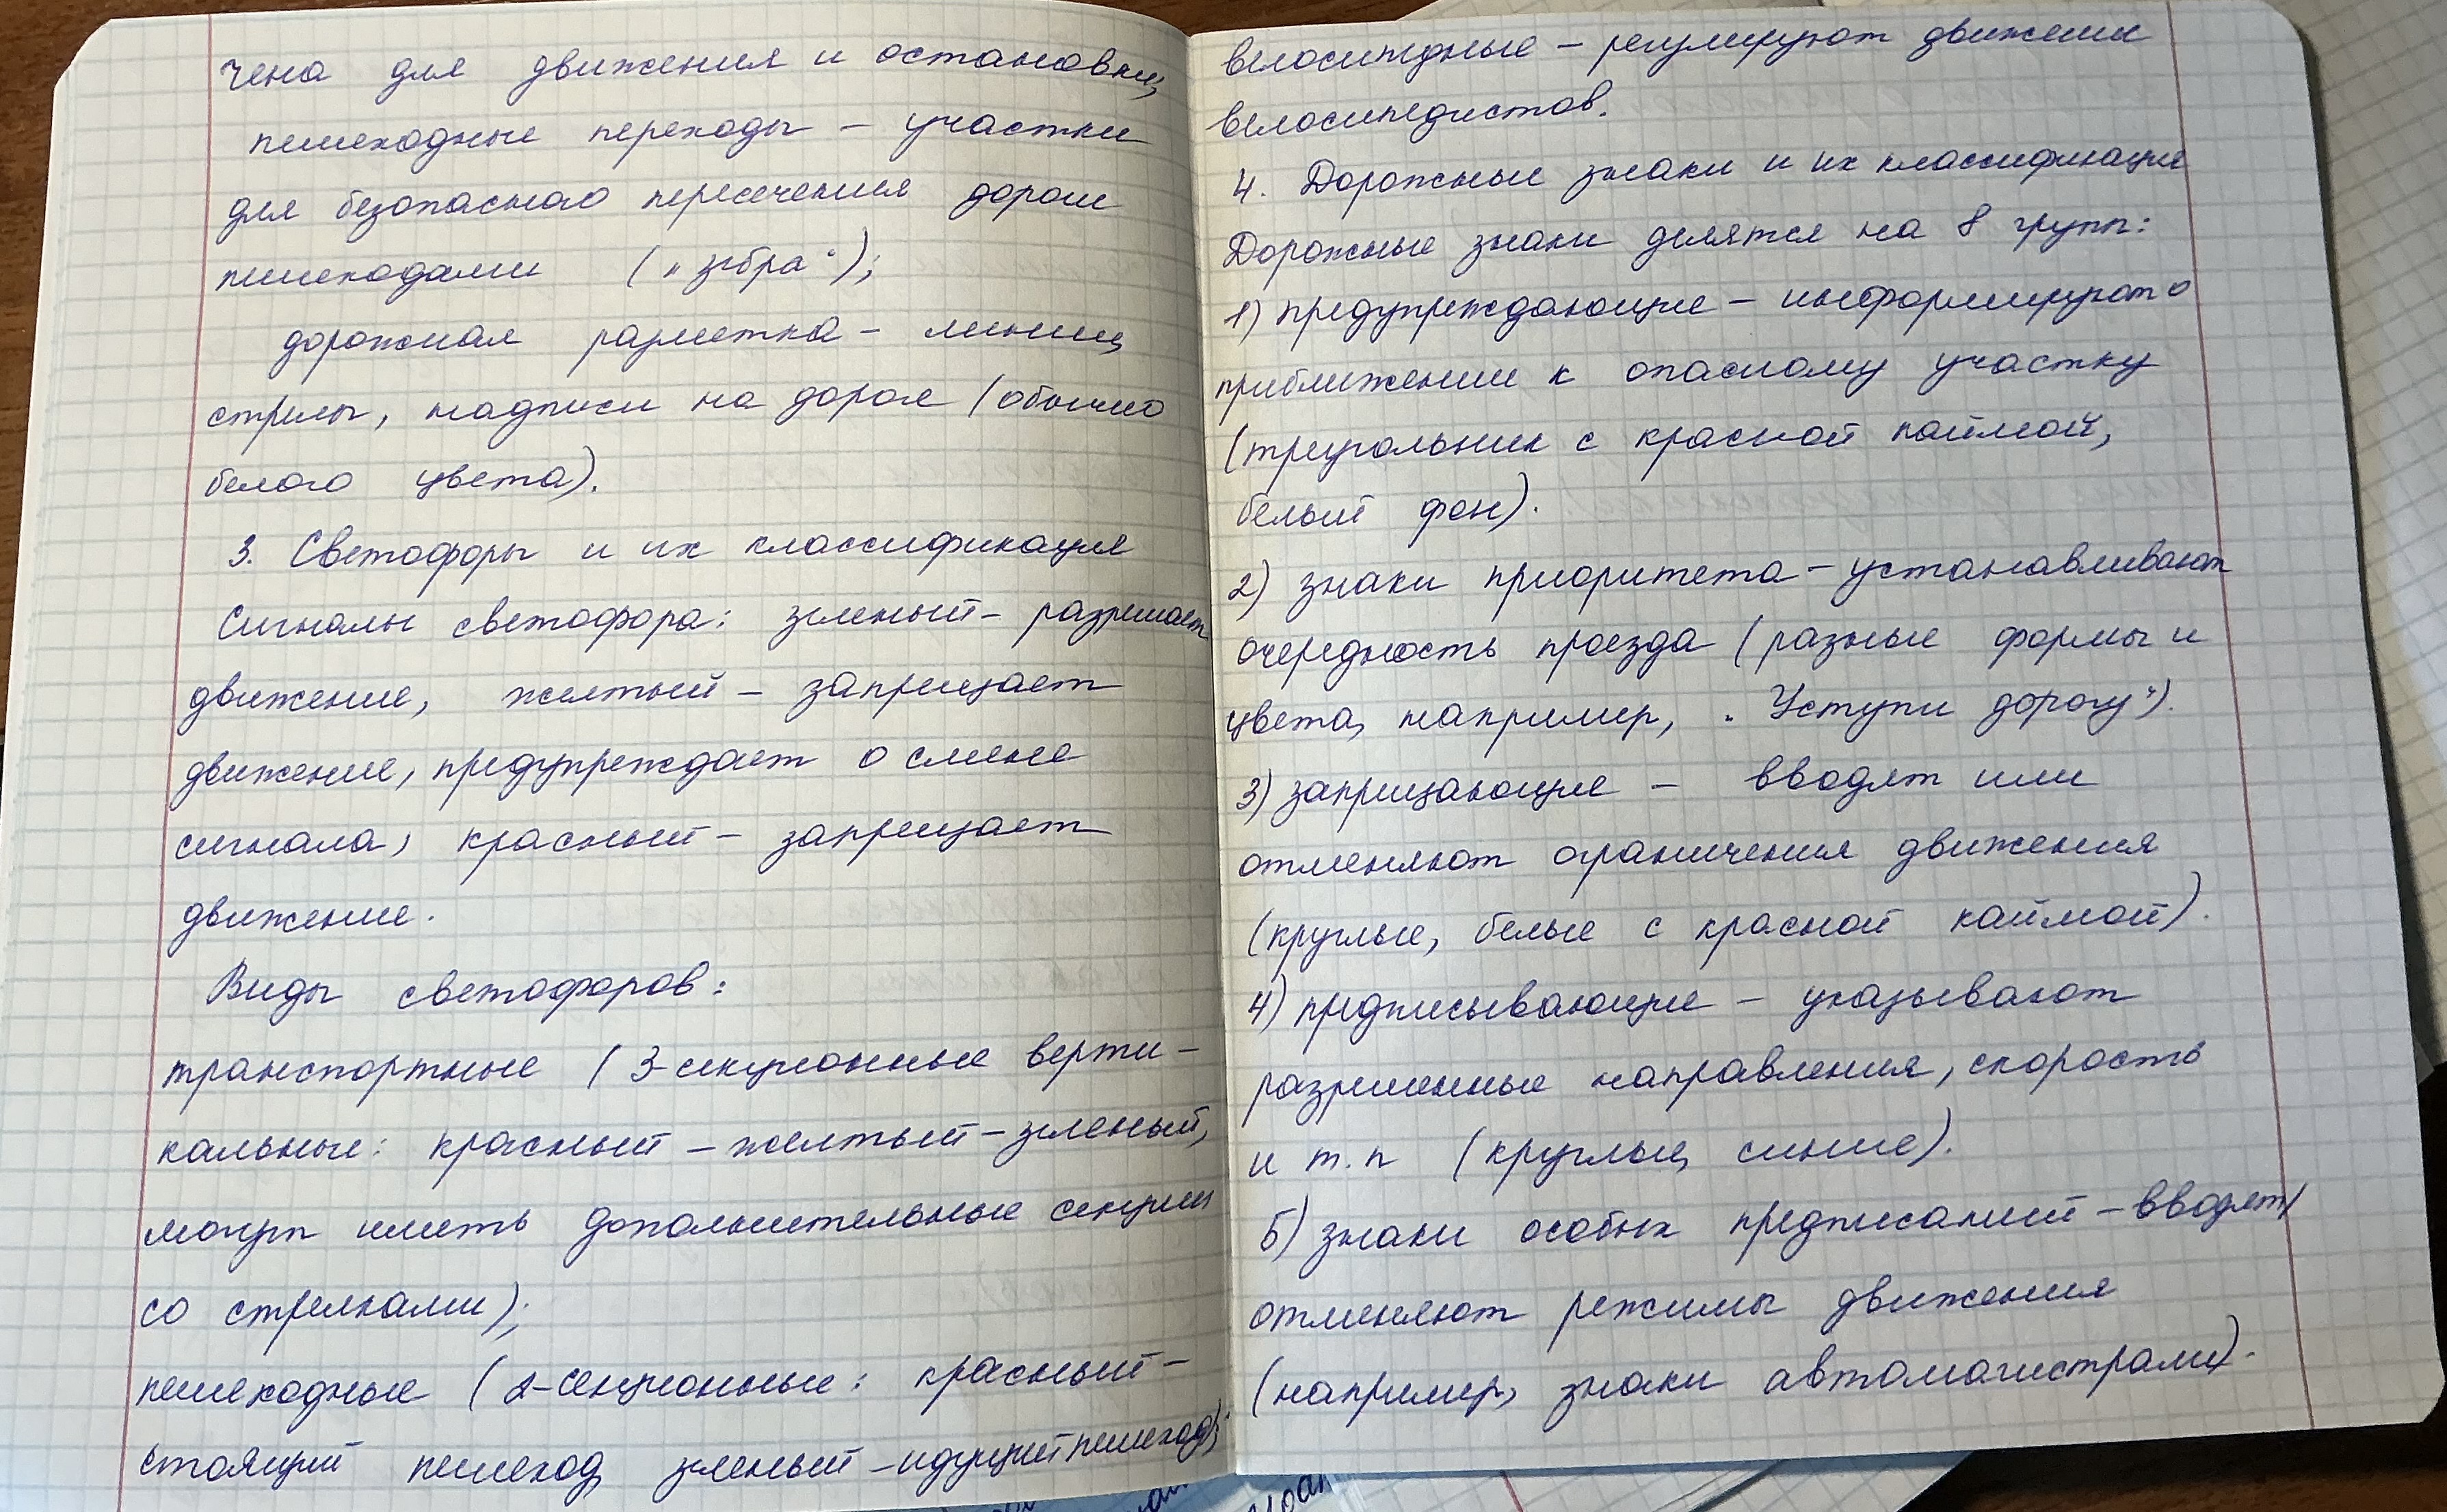 чена для движения и остановки,
пешеходные переходы – участки
для безопасного пересечения дороги
пешеходами („зебра“);
дорожная разметка – линии,
стрелы, надписи на дороге (обычно
белого цвета).
3. Светофоры и их классификация
Сигналы светофора: зеленый – разрешает
движение, желтый – запрещает
движение, предупреждает о смене
сигнала, красный – запрещает
движение.
Виды светофоров:
транспортные (3-секционные верти-
кальные: красный – желтый – зеленый,
могут иметь дополнительные секции
со стрелками);
пешеходные (2-секционные: красный –
стоящий пешеход, зеленый – идущий пешеход);
велосипедные – регулируют движение
велосипедистов.
4. Дорожные знаки и их классификация
Дорожные знаки делятся на 8 групп:
1) предупреждающие – информируют о
приближении к опасному участку
(треугольник с красной каймой,
белый фон).
2) знаки приоритета – устанавливают
очередность проезда (разные формы и
цвета, например, „Уступи дорогу“).
3) запрещающие – вводят или
отменяют ограничения движения
(круглые, белые с красной каймой).
4) предписывающие – указывают
разрешенные направления, скорость
и т.п (круглые, синие).
5) знаки особых предписаний – вводят/
отменяют режимы движения
(например, знаки автомагистрали).